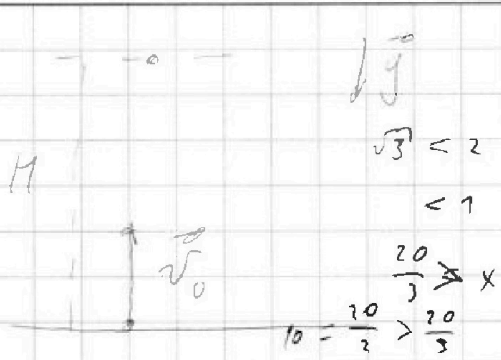 g⃗
√3 < 2
H
< 1
v⃗₀
20/3 > x
10 = 20/2 > 20/3